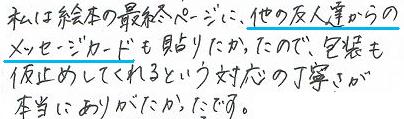 私は絵本の最終ページに、他の友人達からの
メッセージカードも貼りたかったので、包装も
仮止めしてくれるという対応の丁寧さが
本当にありがたかったです。